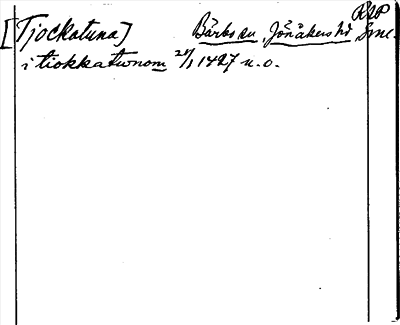 RAP
[Tjockatuna] Bärbo sn, Jönåkers hd Sml.
i tiokkatwnom 25/1 1427 u.o.